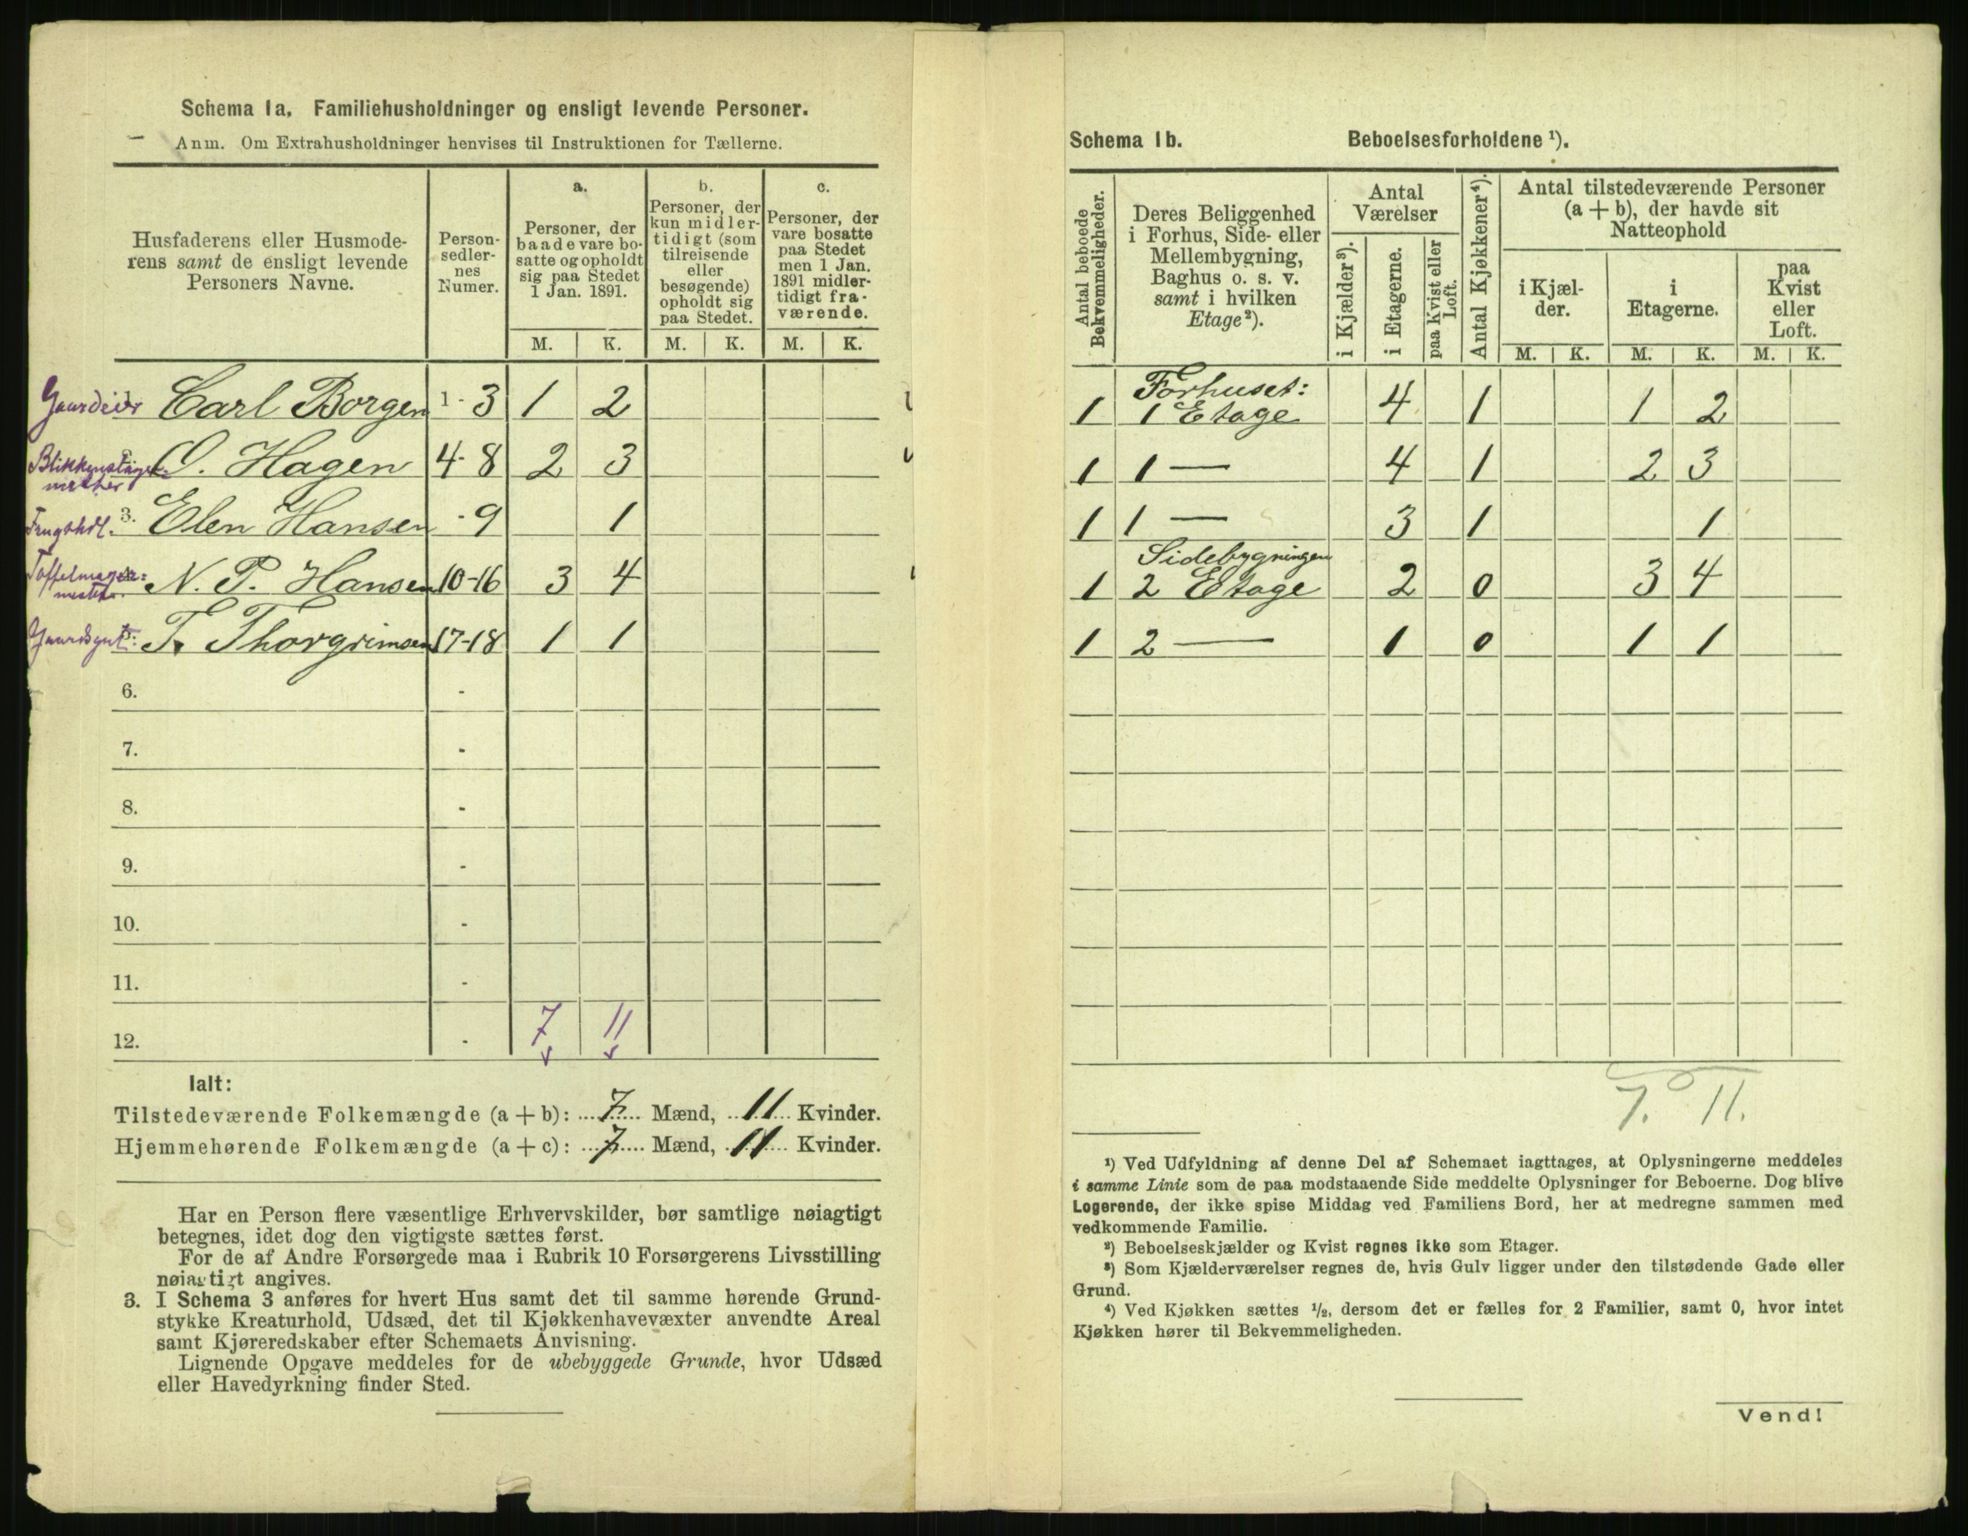 Schema 1a. Familiehusholdninger og ensligt levende Personer.
Anm. Om Extrahusholdninger henvises til Instruktionen for Tællerne.
Husfaderens eller Husmode-
rens samt de ensligt levende
Personers Navne.
Person-
sedler-
nes
Numer.
a.
Personer, der
baade vare bo-
satte og opholdt
sig paa Stedet
1 Jan. 1891.
b.
Personer, der
kun midler-
tidigt (som
tilreisende
eller
besøgende)
opholdt sig
paa Stedet.
c.
Personer, der
vare bosatte
paa Stedet
men 1 Jan.
1891 midler-
tidigt fra-
værende.
M. K. M. K. M. K.
Gaardeier Carl Borgen 1-3 1 2
Blikkenslager-
mester O. Hagen 4-8 2 3
3. Elen Hansen -9 1
Toffelmager=
mester. N. P. Hansen 10-16 3 4
Gaardsgut: T. Thorgrimsen 17-18 1 1
6. -
7. -
8. -
9. -
10. -
11. -
12. - 7 11
Ialt:
Tilstedeværende Folkemængde (a + b): 7 Mænd, 11 Kvinder.
Hjemmehørende Folkemængde (a + c): 7 Mænd, 11 Kvinder.
Har en Person flere væsentlige Erhvervskilder, bør samtlige nøiagtigt
betegnes, idet dog den vigtigste sættes først.
For de af Andre Forsørgede maa i Rubrik 10 Forsørgerens Livsstilling
nøiagtigt angives.
3. I Schema 3 anføres for hvert Hus samt det til samme hørende Grund-
stykke Kreaturhold, Udsæd, det til Kjøkkenhavevæxter anvendte Areal
samt Kjøreredskaber efter Schemaets Anvisning.
Lignende Opgave meddeles for de ubebyggede Grunde, hvor Udsæd
eller Havedyrkning finder Sted.
Schema 1b. Beboelsesforholdene ¹).
Antal beboede
Bekvemmeligheder.
Deres Beliggenhed
i Forhus, Side- eller
Mellembygning,
Baghus o. s. v.
samt i hvilken
Etage²).
Antal
Værelser
i Kjælder³).
i Etagerne.
paa Kvist eller
Loft.
Antal Kjøkkener⁴).
Antal tilstedeværende Personer
(a + b), der havde sit
Natteophold
i Kjæl-
der.
i
Etagerne.
paa
Kvist
eller
Loft.
M. K. M. K. M. K.
Forhuset:
1 1 Etage 4 1 1 2
1 1 — 4 1 2 3
1 1 — 3 1 1
Sidebygningen
1 2 Etage 2 0 3 4
1 2 — 1 0 1 1
7. 11.
¹) Ved Udfyldning af denne Del af Schemaet iagttages, at Oplysningerne meddeles
i samme Linie som de paa modstaaende Side meddelte Oplysninger for Beboerne. Dog blive
Logerende, der ikke spise Middag ved Familiens Bord, her at medregne sammen med
vedkommende Familie.
²) Beboelseskjælder og Kvist regnes ikke som Etager.
³) Som Kjælderværelser regnes de, hvis Gulv ligger under den tilstødende Gade eller
Grund.
⁴) Ved Kjøkken sættes ½, dersom det er fælles for 2 Familier, samt 0, hvor intet
Kjøkken hører til Bekvemmeligheden.
Vend!